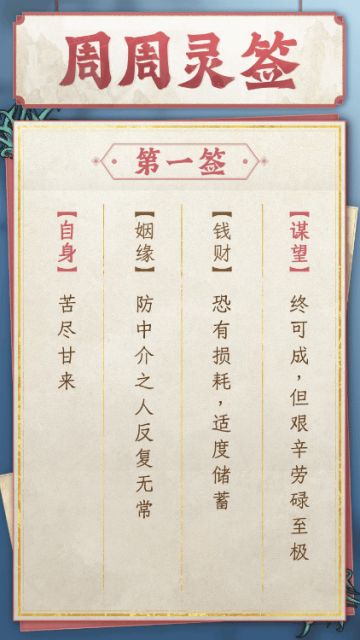 周周灵签
第一签
【谋望】
终可成，但艰辛劳碌至极
【钱财】
恐有损耗，适度储蓄
【姻缘】
防中介之人反复无常
【自身】
苦尽甘来